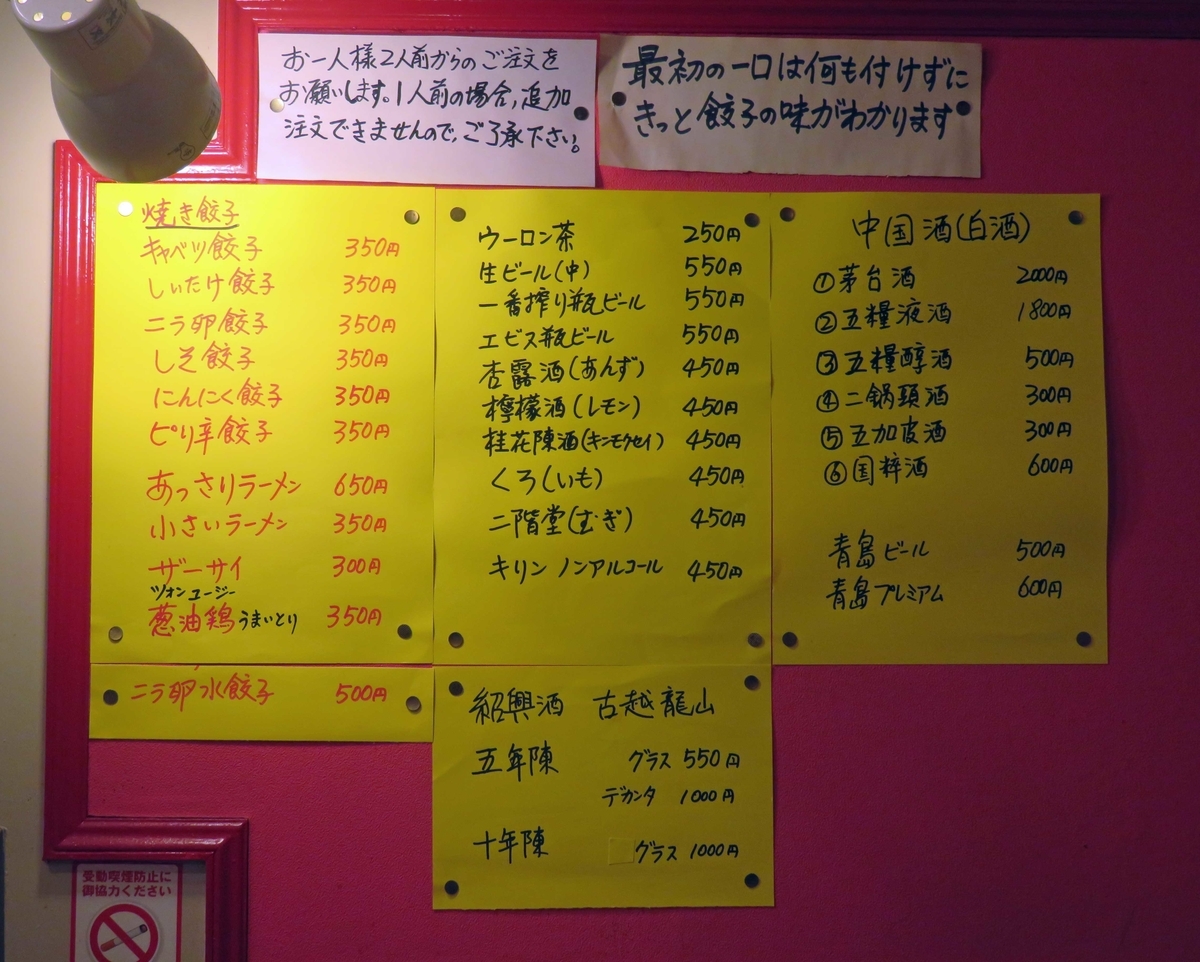 お一人様2人前からのご注文を
お願いします。1人前の場合、追加
注文できませんので、ご了承下さい。
最初の一口は何も付けずに
きっと餃子の味がわかります
焼き餃子
キャベツ餃子 350円
しいたけ餃子 350円
ニラ卵餃子 350円
しそ餃子 350円
にんにく餃子 350円
ピリ辛餃子 350円
あっさりラーメン 650円
小さいラーメン 350円
ザーサイ 300円
ツォンユージー
葱油鶏 うまいとり 350円
ニラ卵水餃子 500円
ウーロン茶 250円
生ビール(中) 550円
一番搾り瓶ビール 550円
ヱビス瓶ビール 550円
杏露酒(あんず) 450円
檸檬酒(レモン) 450円
桂花陳酒(キンモクセイ) 450円
くろ(いも) 450円
二階堂(むぎ) 450円
キリン ノンアルコール 450円
紹興酒 古越龍山
五年陳 グラス 550円
デカンタ 1000円
十年陳 グラス 1000円
中国酒(白酒)
①茅台酒 2000円
②五糧液酒 1800円
③五糧醇酒 500円
④二锅頭酒 300円
⑤五加皮酒 300円
⑥国粹酒 600円
青島ビール 500円
青島プレミアム 600円
受動喫煙防止に
御協力ください